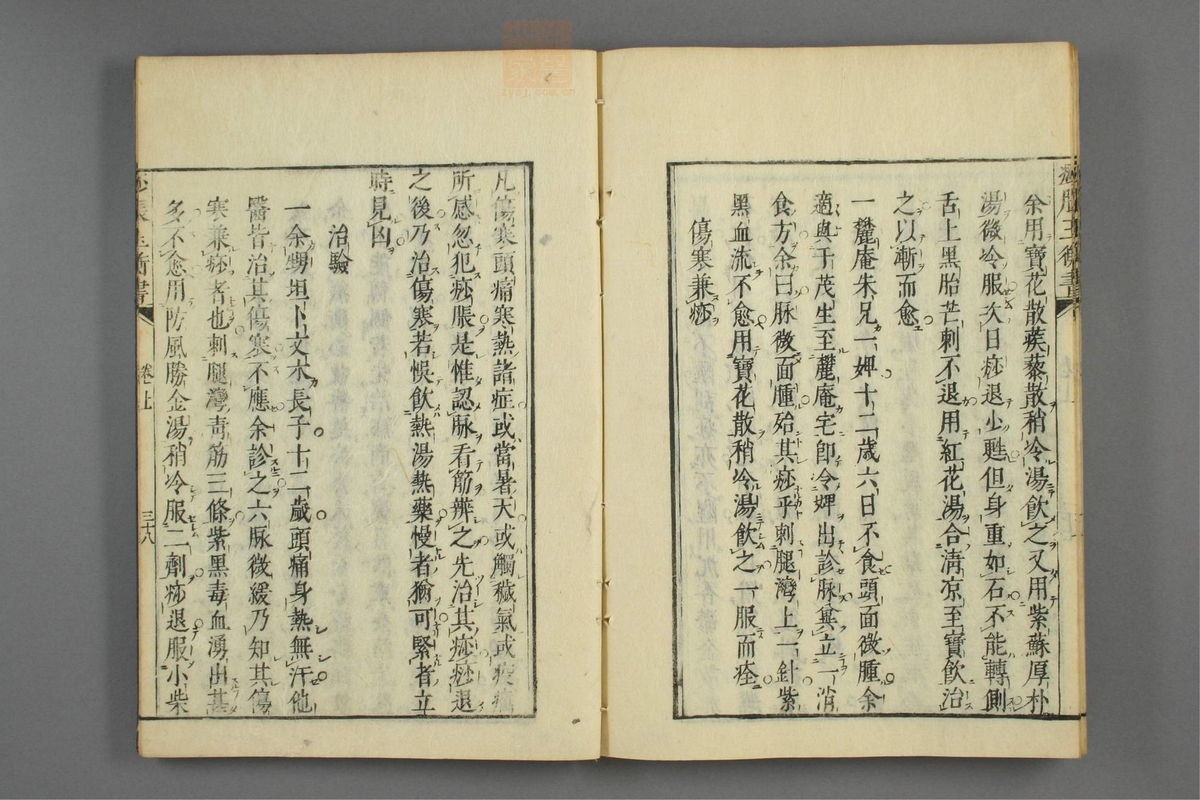 痧脹玉衡書
余用寶花散蒺藜散稍冷湯飲之又用紫蘇厚朴
湯微冷服次日痧退少甦但身重如石不能轉側
舌上黑胎芒刺不退用紅花湯合清凉至寶飲治
之以漸而愈
一麓庵朱兄一婢十二歲六日不食頭面微腫余
適與于茂生至麓庵宅即令婢出診脉兾立一消
食方余曰脉微面腫殆其痧乎刺腿灣上一針紫
黑血流不愈用寶花散稍冷湯飲之一服而痊
傷寒兼痧
凡傷寒頭痛寒熱諸症或當暑天或觸穢氣或疫
所感忽犯痧脹是惟認脉看筋辨之先治其痧痧退
之後乃治傷寒若悞飲熱湯熱藥慢者猶可緊者立
時見凶
治驗
一余甥坦卜文木長子十二歲頭痛身熱無汗他
醫皆治其傷寒不應余診之六脉微緩乃知其傷
寒兼痧者也刺腿灣青筋三條紫黑毒血湧出甚
多不愈用防風勝金湯稍冷服二劑痧退服小柴
痧脹玉衡書
卷上
三十八